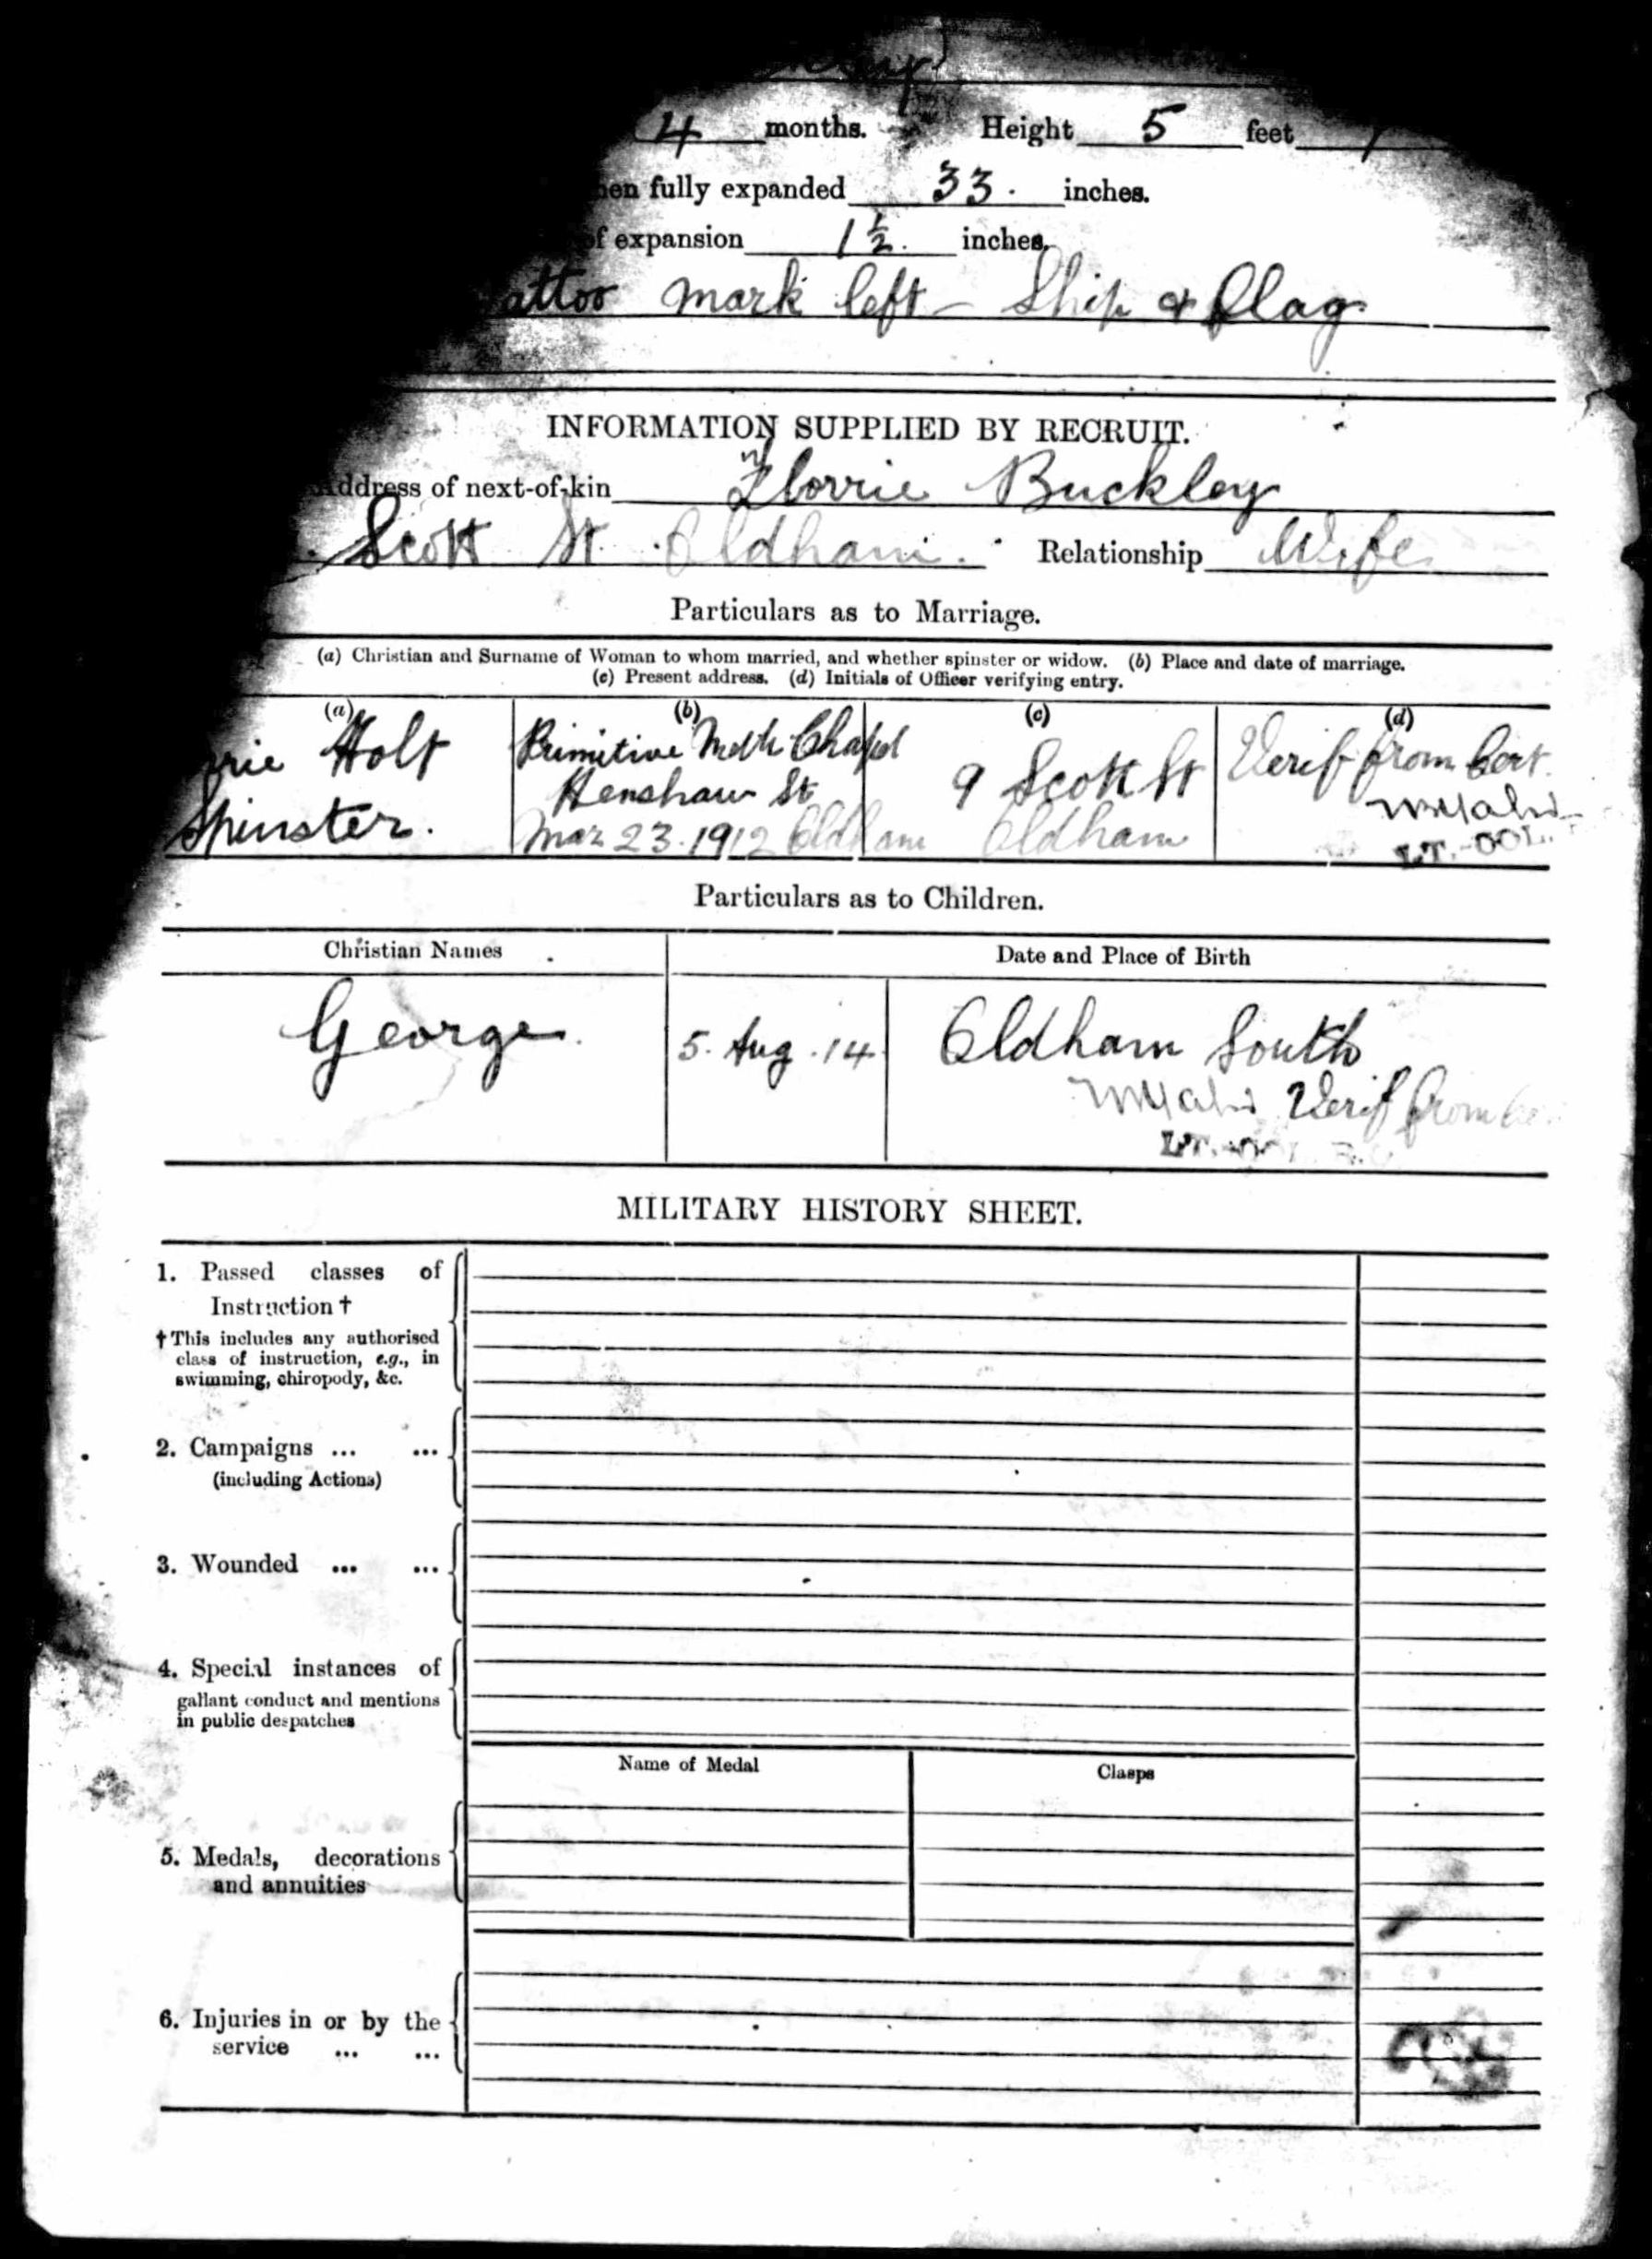 4 months. Height 5 feet 1
en fully expanded 33. inches.
of expansion 1½. inches.
attoo mark left - Ship & Flag
INFORMATION SUPPLIED BY RECRUIT.
Address of next-of-kin Florrie Buckley
Scott St. Oldham. Relationship Wife
Particulars as to Marriage.
(a) Christian and Surname of Woman to whom married, and whether spinster or widow. (b) Place and date of marriage.
(c) Present address. (d) Initials of Officer verifying entry.
(a) (b) (c) (d)
rrie Holt Primitive Meth Chapel 9 Scott St Verif from Cert.
Henshaw St
Spinster. Mar 23. 1912 Oldham Oldham LT.-COL.
Particulars as to Children.
Christian Names Date and Place of Birth
George. 5. Aug. 14 Oldham South
Verif from
LT.-COL.
MILITARY HISTORY SHEET.
1. Passed classes of
Instruction †
† This includes any authorised
class of instruction, e.g., in
swimming, chiropody, &c.
2. Campaigns ... ...
(including Actions)
3. Wounded ... ...
4. Special instances of
gallant conduct and mentions
in public despatches
Name of Medal Clasps
5. Medals, decorations
and annuities
6. Injuries in or by the
service ... ...